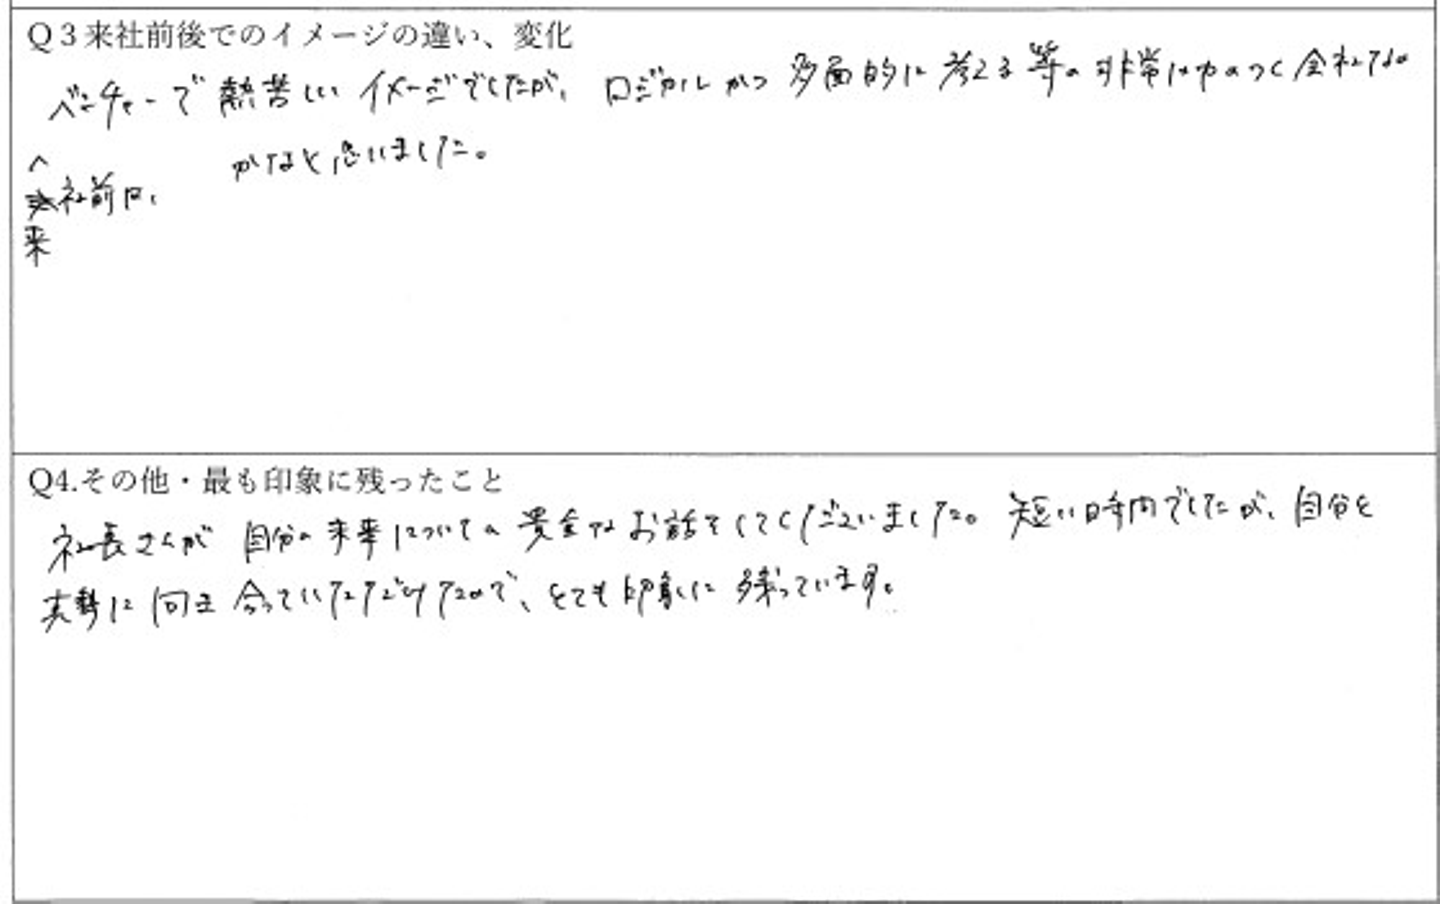 Q３来社前後でのイメージの違い、変化
ベンチャーで熱苦しいイメージでしたが、ロジカルかつ多面的に考える等の非常に力のつく会社なの
かなと思いました。
^
社前は、
来
Q4.その他・最も印象に残ったこと
社長さんが自分の未来についての貴重なお話をしてくださいました。短い時間でしたが、自分と
真摯に向き合っていただけたので、とても印象に残っています。